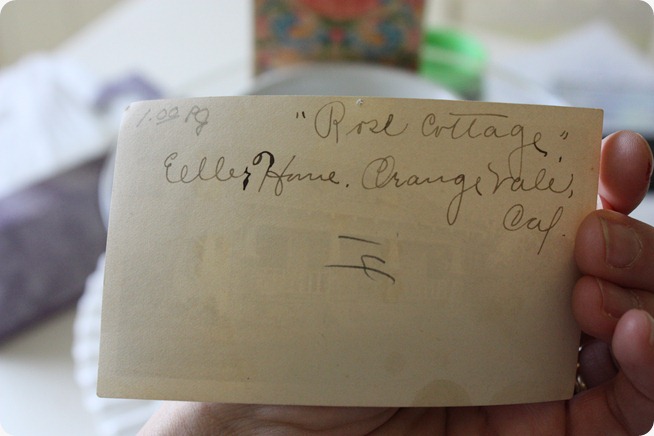 1.00 pg
"Rose Cottage"
Home. Orange Vale,
Cal.